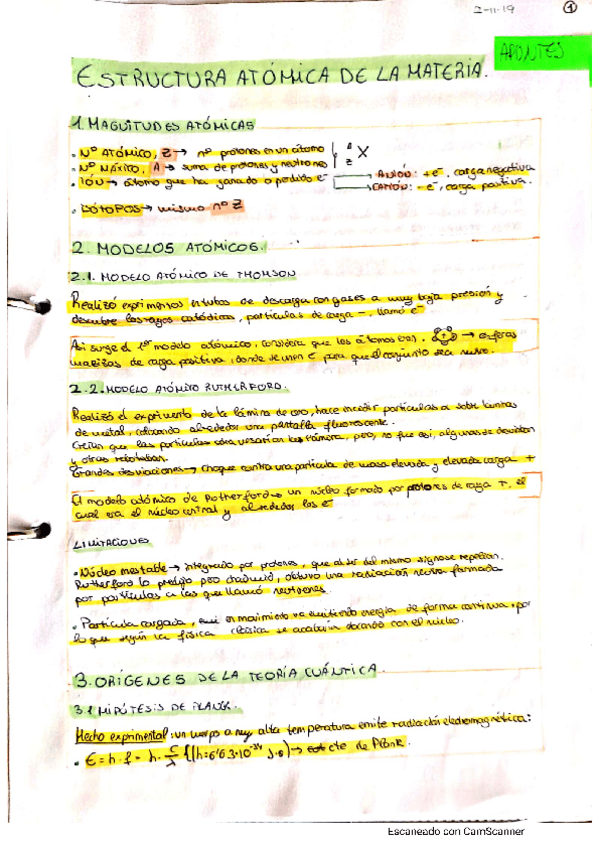 2-11-19 1
APUNTES
ESTRUCTURA ATÓMICA DE LA MATERIA.
1. MAGNITUDES ATÓMICAS
· Nº ATÓMICO, Z → nº protones en un átomo } A X
· Nº MÁXICO, A → suma de protones y neutrones Z
· IÓN → átomo que ha ganado o perdido e⁻ → ANIÓN: +e⁻, carga negativa
→ CATIÓN: -e⁻, carga positiva.
· ISÓTOPOS → mismo nº Z
2. MODELOS ATÓMICOS.
2.1. MODELO ATÓMICO DE THOMSON
Realizó exprimentos en tubos de descarga con gases a muy baja presión y
descubre los rayos catódicos, partículas de carga -, llamó e⁻
Así surge el 1er modelo atómico, considera que los átomos eran → esferas
macizas de carga positiva, donde se unen e⁻ para que el conjunto sea neutro.
2.2. MODELO ATÓMICO RUTHERFORD.
Realizó el exprimento de la lámina de oro, hace incidir partículas α sobre láminas
de metal, colocando alrededor una pantalla fluorescente.
Creían que las partículas atravesarían la lámina, pero, no fue así, algunas se desviaban
y otras rebotaban.
Grandes desviaciones → choque contra una partícula de masa elevada y elevada carga +
El modelo atómico de Rutherford → un núcleo formado por protones de carga +, el
cual era el núcleo central y alrededor los e⁻
LIMITACIONES
· Núcleo inestable → integrado por protones, que al ser del mismo signo se repelían.
Rutherford lo predijo pero chadwick, obtuvo una radiación nueva formada
por partículas a las que llamó neutrones.
· Partícula cargada, en movimiento va emitiendo energía de forma continua, por
lo que según la física clásica se acabaría chocando con el núcleo.
3. ORÍGENES DE LA TEORÍA CUÁNTICA.
3.1 HIPÓTESIS DE PLANK.
Hecho experimental: un cuerpo a muy alta temperatura emite radiación electromagnética:
· E = h · f = h · c/λ {(h=6'63·10⁻³⁴ J·s) → cte de Plank.
Escaneado con CamScanner